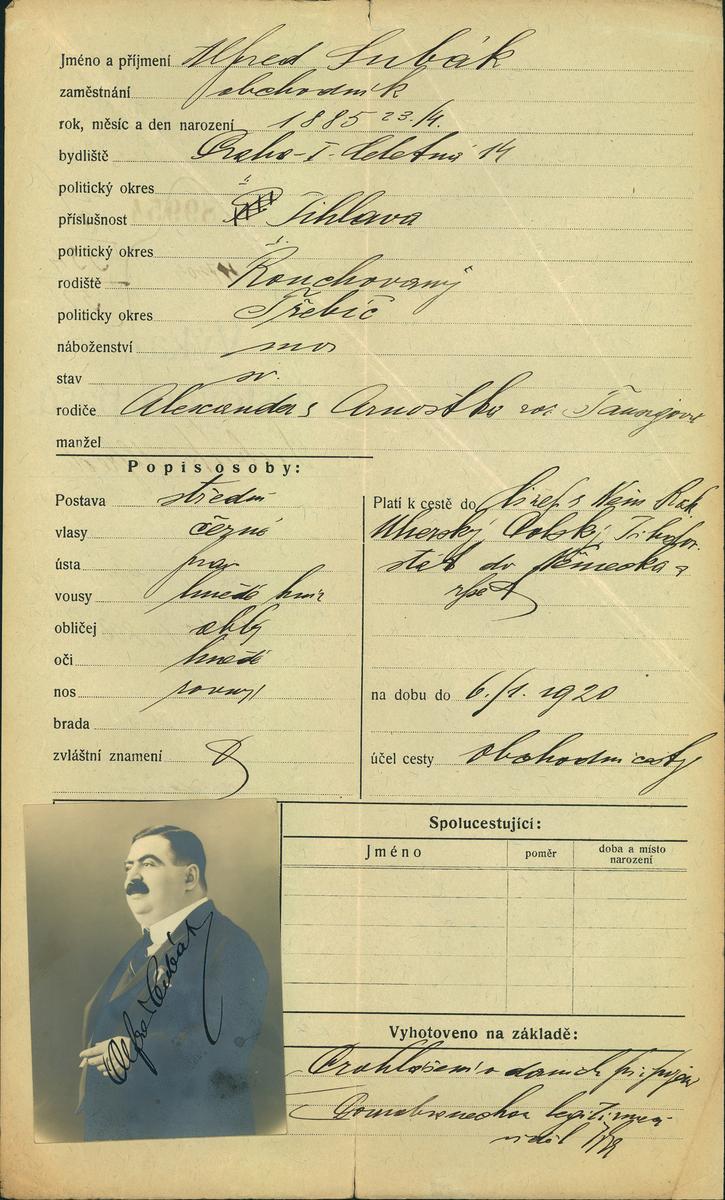 Jméno a příjmení Alfred Lubák
zaměstnání obchodník
rok, měsíc a den narození 1885 23./4.
bydliště Praha-I. Celetná 14
politický okres "
příslušnost Jihlava
politický okres "
rodiště Rouchovaný
politický okres Třebíč
náboženství mos
stav sv.
rodiče Alexander s Arnoštka roz.
manžel
Popis osoby:
Postava střední
vlasy černé
ústa prav
vousy hnědé knír
obličej oblý
oči hnědé
nos rovný
brada
zvláštní znamení
Platí k cestě do Něm Rak.
Uherský, Polský,
stát do Německa a
zpět
na dobu do 6./1. 1920
účel cesty obchodní cesty
Spolucestující:
Jméno
poměr
doba a místo
narození
Alfred Lubák
Vyhotoveno na základě:
Prohlášení o daních
legitimace
viděl